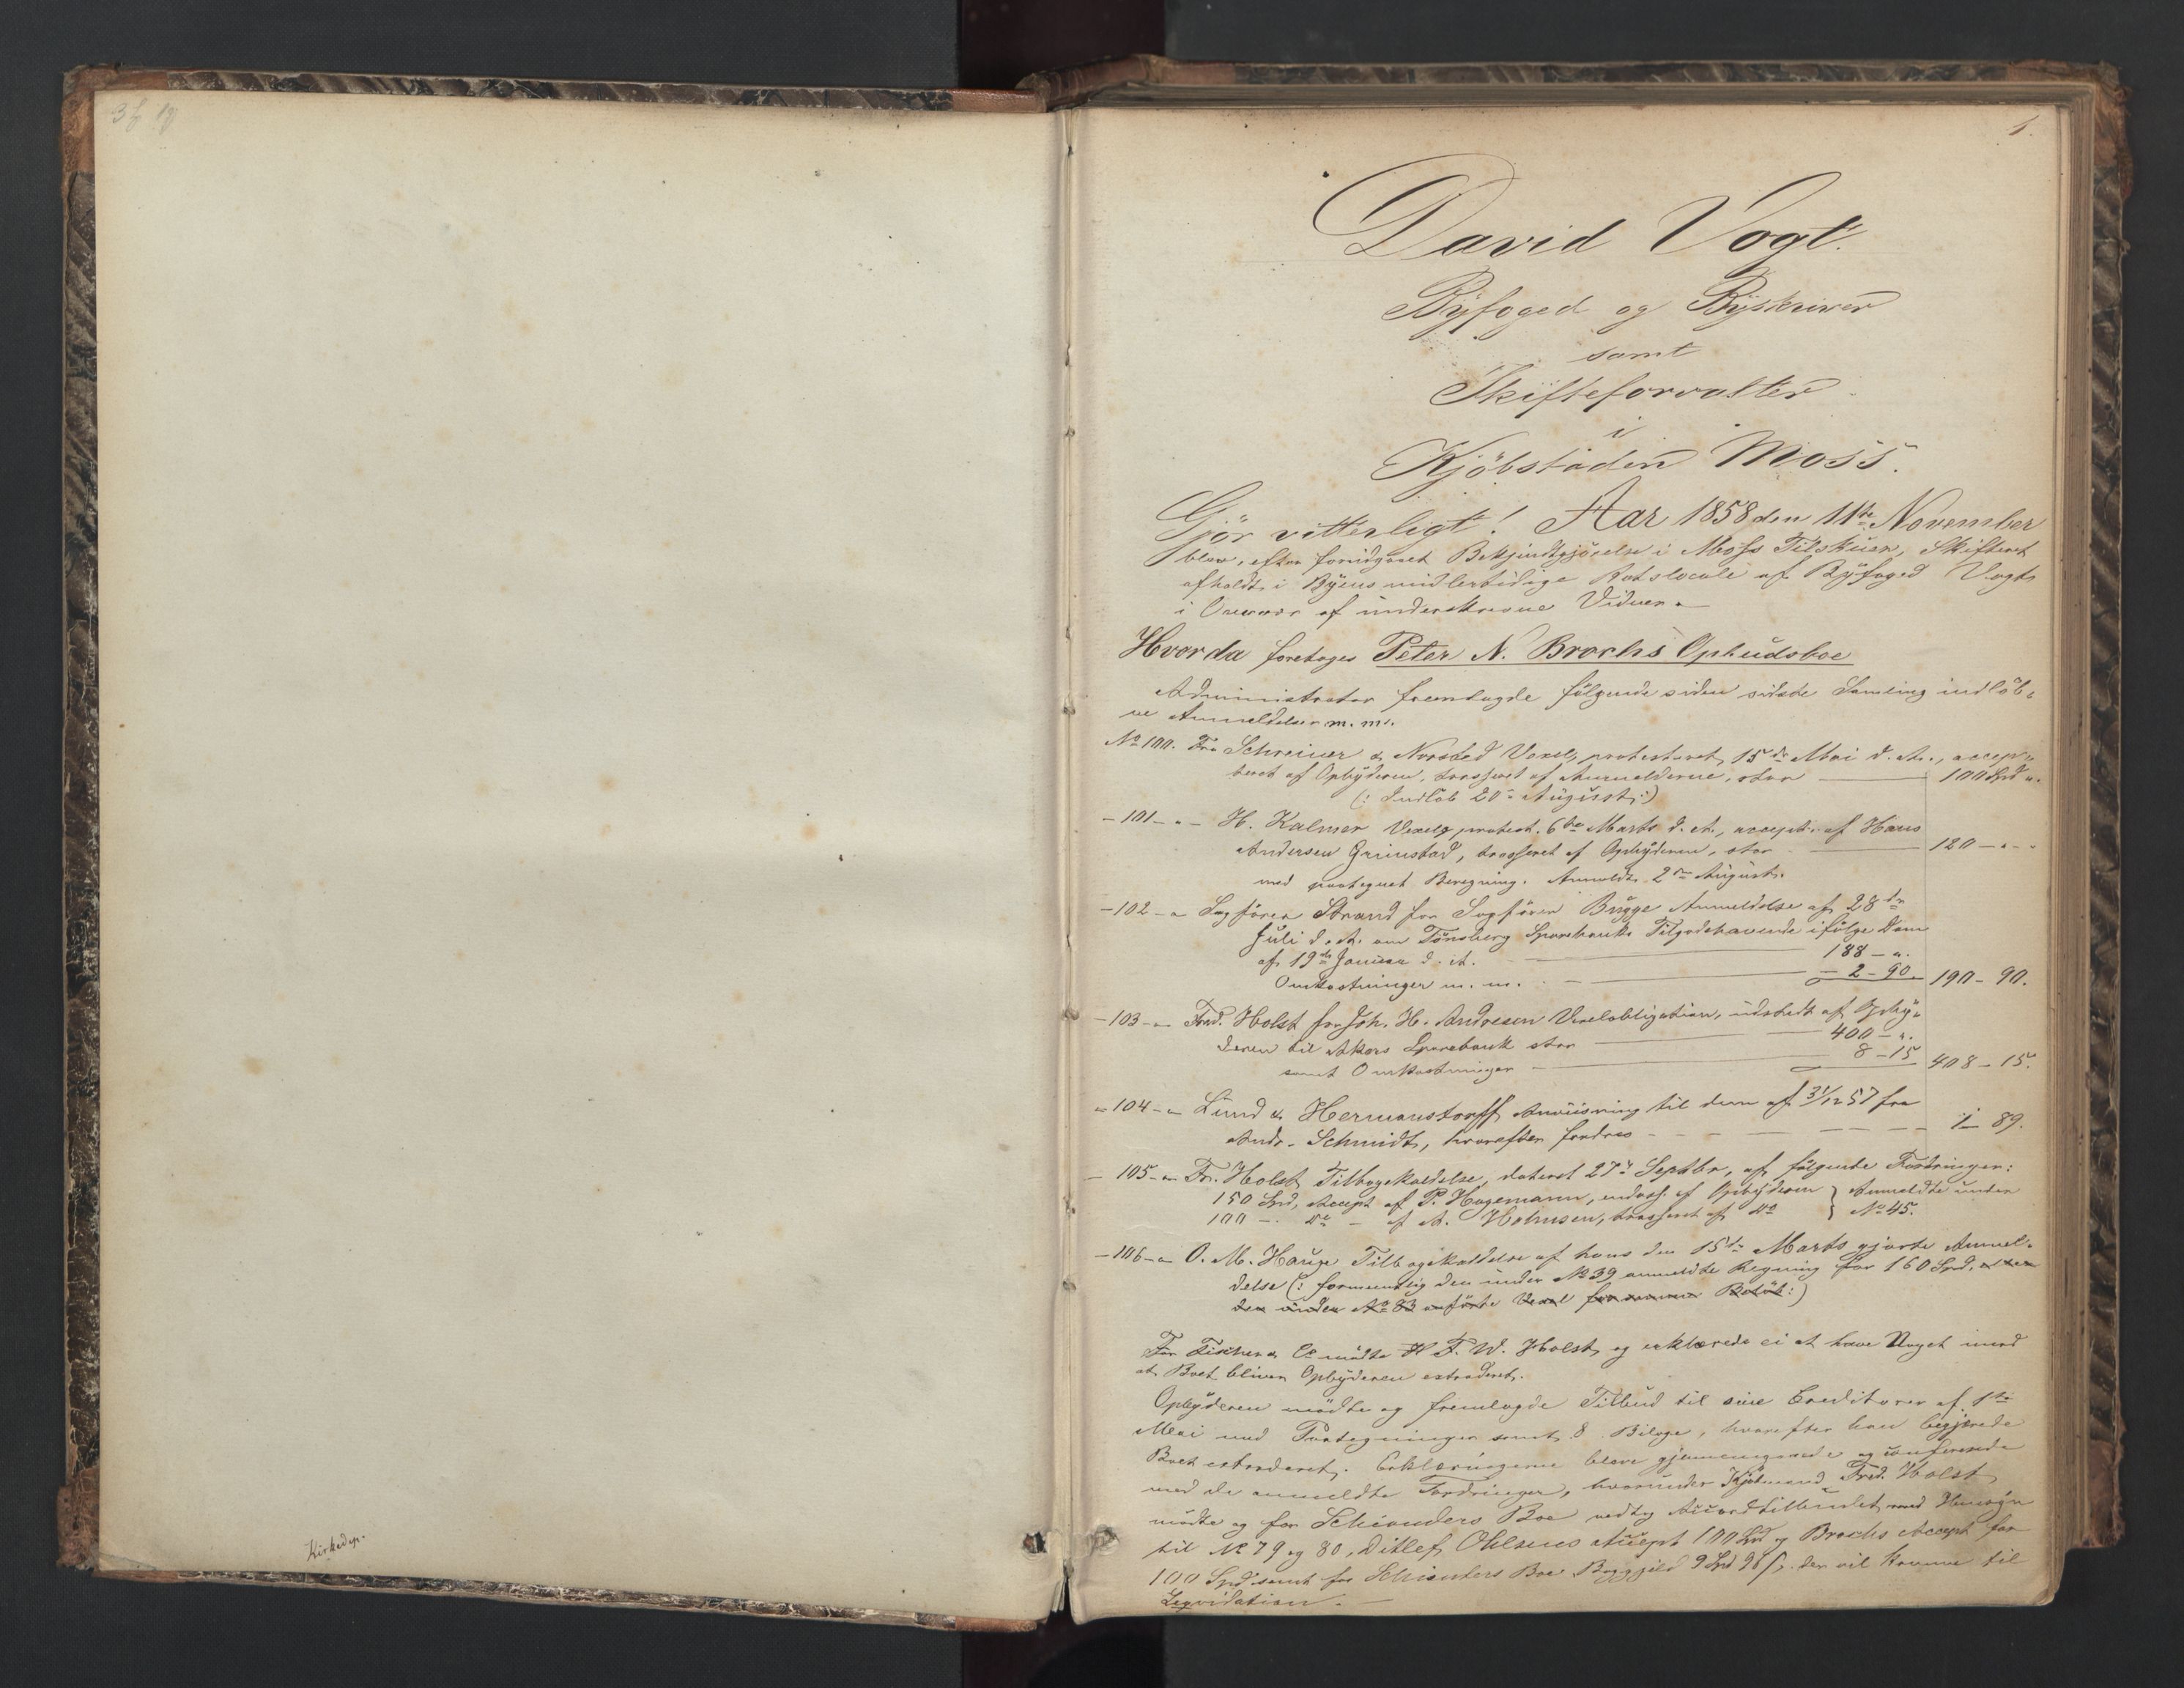 1.
David Vogt.
Byfoged og Byskriver
samt
Skifteforvalter
i
Kjöbstaden Moss.
Gjör vitterligt! Aar 1858 den 11te November
blev, efter foregaaet Bekjendtgjörelse i Moss Tilskuer, Skifteret
afholdt i Byens midlertidige Retslocale af Byfoged Vogt
i Overvær af underskrevne Vidner.
Hvorda foretoges Peter N. Brochs Opbudsboe
Administrator fremlagde fölgende siden sidste Samling indlöb-
ne Anmeldelser m. m.
No 100. Fra Schreiner & Norsted Vexel, protesteret 15de Mai d. A., accep-
teret af Opbyderen, trasseret af Anmelderne, stor 100 Spd ".
(: Indlöb 20de August :)
- 101 - " - H. Kalmer Vexel, protest. 6te Marts d. A., accept. af Hans
Andersen Grimstad, trasseret af Opbyderen, stor 120 - " -
med paategnet Beregning. Anmeldt 2den August.
- 102 - " Sagförer Strand for Sagförer Bugge Anmeldelse af 28de
Juli d. A. om Tönsberg Sparebanks Tilgodehavende ifölge Dom
af 19de Januar d. A. 188 - ".
Omkostninger m. m. - 2 - 90. 190 - 90.
- 103 - " Fred. Holst for Joh. H. Andresen Vexelobligation, udstedt af Opby-
deren til Akers Sparebank stor 400 - ".
samt Omkostninger 8 - 15 408 - 15.
- 104 - " Lund & Hermanstorff Anviisning til dem af 31/12 57 fra
Andr. Schmidt, hvorefter fordres 1 - 89.
- 105 - " Fr. Holst Tilbagekaldelse, dateret 27de Septbr, af fölgende Fordringer:
150 Spd, Accept af P. Hagemann, endoss. af Opbyderen } Anmeldte under
100 - do - af A. Holmsen, trasseret af do } No 45.
- 106 - " O. M. Hauge Tilbagekaldelse af hans den 15de Marts gjorte Anmel-
delse (: formeentlig den under No 39 anmeldte Regning for 160 Spd, eller
den under No 83 anförte Vexel for samme Belöb :)
For Fischer & Co mödte F. W. Holst og erklærede ei at have Noget imod
at Boet bliver Opbyderen extraderet.
Opbyderen mödte og fremlagde Tilbud til sine Creditorer af 1ste
Mai med Paategninger samt 8 Bilage, hvorefter han begjærede
Boet extraderet. Erklæringerne bleve gjennemgaaede og confererede
med de anmeldte Fordringer, hvorunder Kjöbmand Fred. Holst
mödte og for Schianders Boe vedtog Accordtilbudet med Hensyn
til No 79 og 80, Ditlef Ohlsens Accept 100 Spd og Brochs Accept for
100 Spd samt for Schianders Boe Boggjeld 9 Spd 98 s. der vil komme til
Liqvidation. -
Kirkedep.